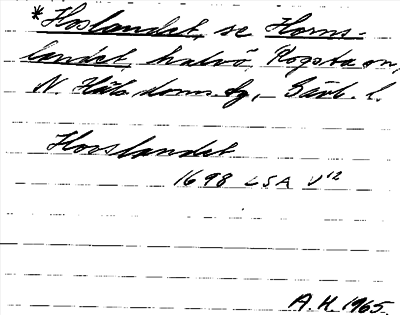 *Hoslandet, se Horns-
landet, halvö, Rogsta sn,
N. Häls. doms. tg, Gävl. l.
Horslandet
1698 LSA V12
A.H. 1965.